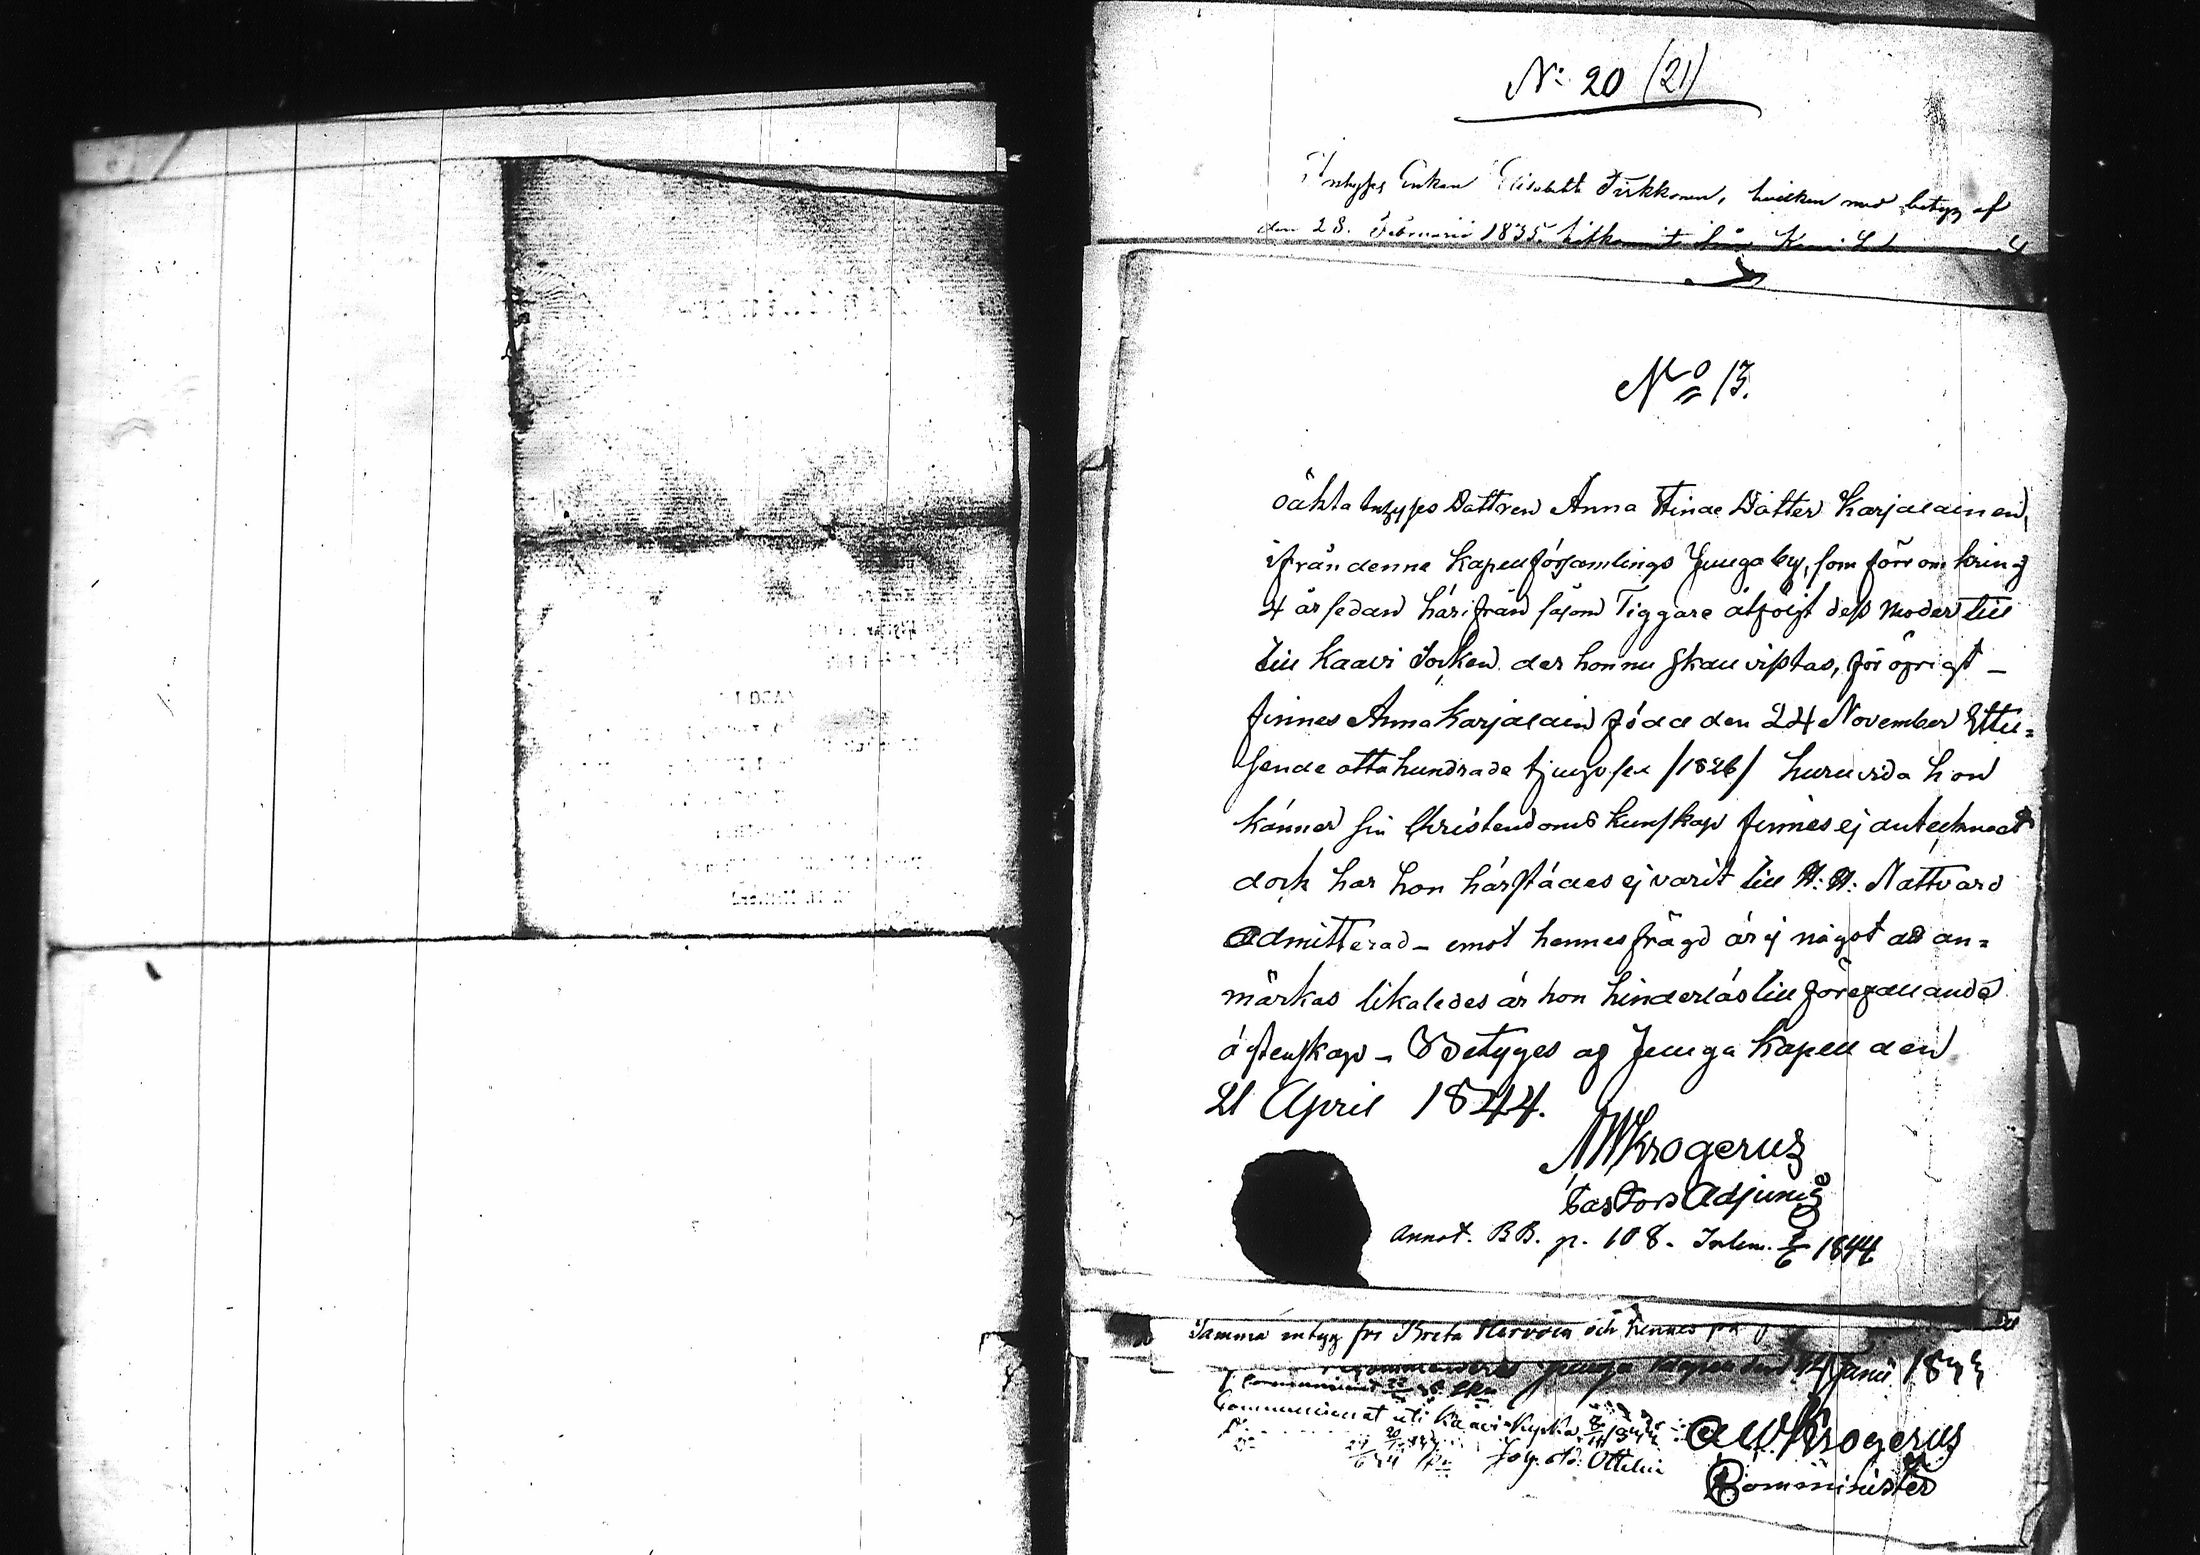 N: 20 (21)
Enkan Elisabeth Tirkkonen, hvilken med betyg af
den 28. Februarii 1835 hitkommit från
No 13.
oäkta Dottren Anna Stina Dotter Karjalainen,
ifrån denne Kapellförsamlings Juuga by, som för omkring
4 år sedan härifrån såsom Tiggare åtföljt dess Moder till
till Kaavi Socken der hon nu skall vistas, för öfrigt –
finnes Anna Karjalain född den 24 November Ettu=
sende åtta hundrade tjugu sex /1826/ huruvida hon
känner sin Christendoms kunskap finnes ej antecknadt
dock har hon härstädes ej varit till H: H: Nattvard
admitterad – emot hennes frägd är ej något ad an=
märkas likaledes är hon hinderlös till förefallande
ägtenskap – Betyges af Juuga Kapell den
21 April 1844.
AWKrogerus
Pastors Adjunct
Annot. BB. p. 108. Inlem. 2/6 1844
Samma intyg för Greta och hennes
Juuga Kapell den 14 Junii 1844
Communicerat uti Kaavi Kyrka 8/11 1844
AWKrogerus
Comminister